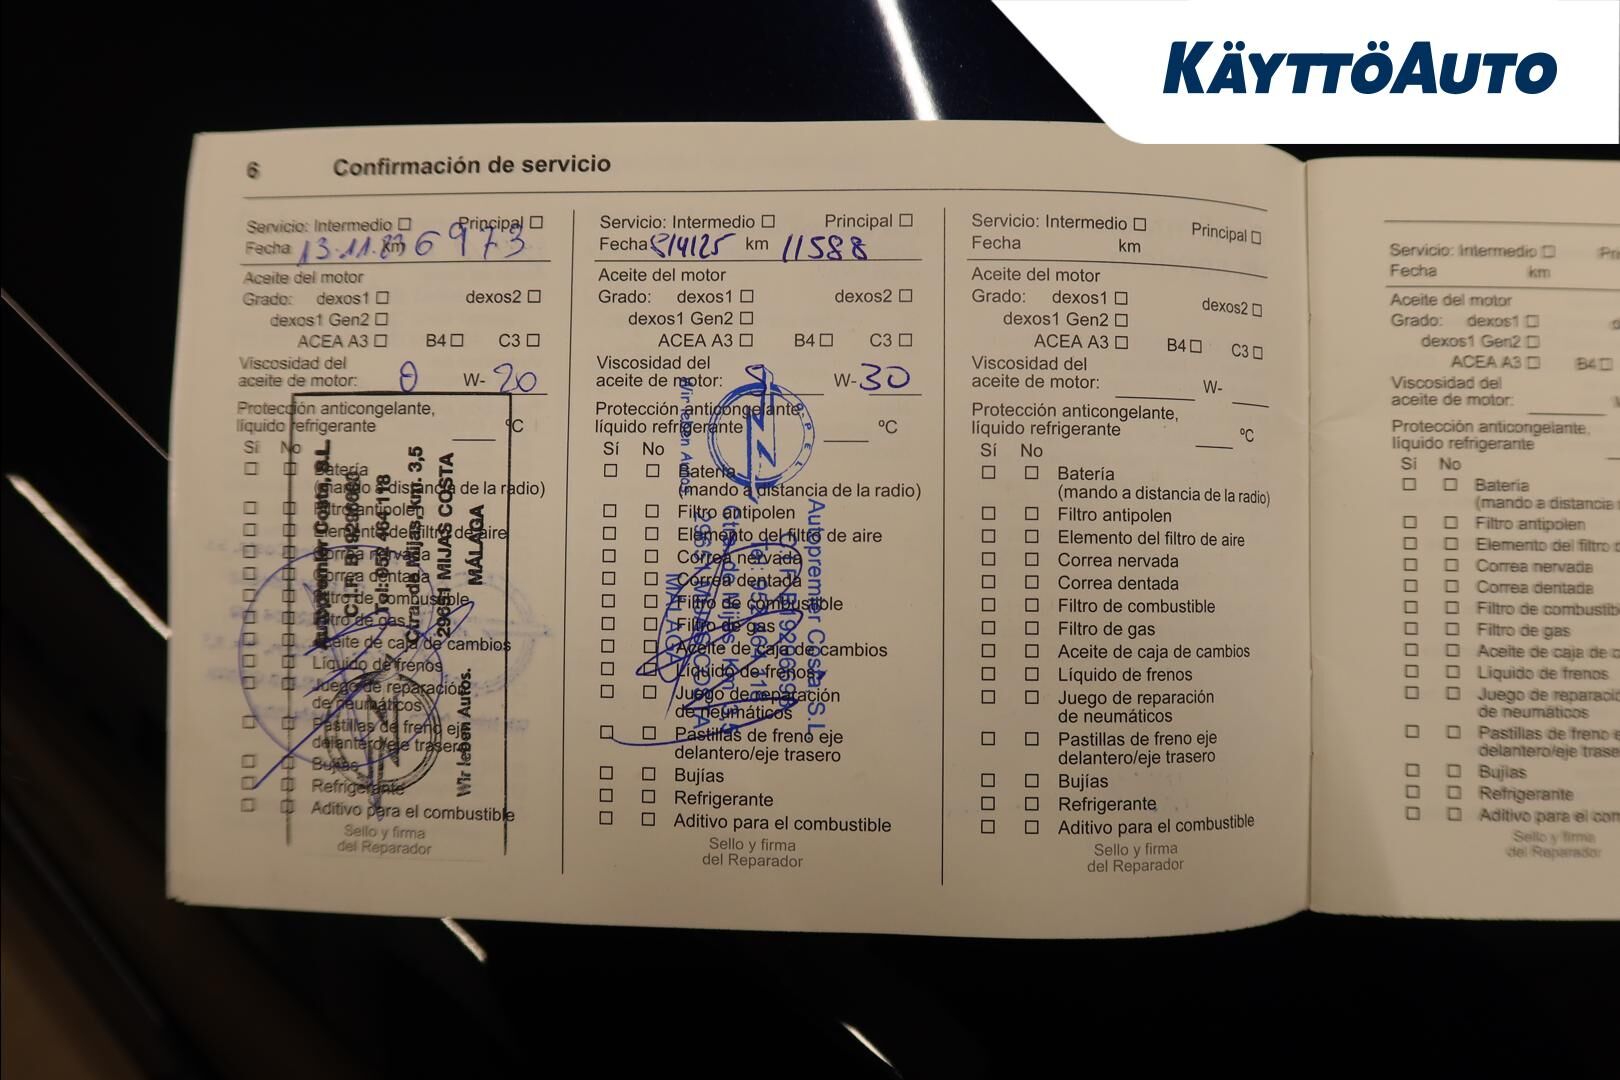 KÄYTTÖAUTO
6 Confirmación de servicio
Servicio: Intermedio ☐ Principal ☐
Fecha 13.11.23 km 6973
Aceite del motor
Grado: dexos1 ☐ dexos2 ☐
dexos1 Gen2 ☐
ACEA A3 ☐ B4 ☐ C3 ☐
Viscosidad del
aceite de motor: 0 W-20
Protección anticongelante,
líquido refrigerante ____ ºC
Sí No
☐ ☐ Batería
(mando a distancia de la radio)
☐ ☐ Filtro antipolen
☐ ☐ Elemento del filtro de aire
☐ ☐ Correa nervada
☐ ☐ Correa dentada
☐ ☐ Filtro de combustible
☐ ☐ Filtro de gas
☐ ☐ Aceite de caja de cambios
☐ ☐ Líquido de frenos
☐ ☐ Juego de reparación
de neumáticos
☐ ☐ Pastillas de freno eje
delantero/eje trasero
☐ ☐ Bujías
☐ ☐ Refrigerante
☐ ☐ Aditivo para el combustible
Sello y firma
del Reparador
Autopremier Costa, S.L.
C.I.F.
Tol: 952 464 118
Ctra. de Mijas, km. 3,5
29651 MIJAS COSTA
MÁLAGA
Wir leben Autos.
Servicio: Intermedio ☐ Principal ☐
Fecha 8/4/25 km 11588
Aceite del motor
Grado: dexos1 ☐ dexos2 ☐
dexos1 Gen2 ☐
ACEA A3 ☐ B4 ☐ C3 ☐
Viscosidad del
aceite de motor: W-30
Protección anticongelante,
líquido refrigerante ____ ºC
Sí No
☐ ☐ Batería
(mando a distancia de la radio)
☐ ☐ Filtro antipolen
☐ ☐ Elemento del filtro de aire
☐ ☐ Correa nervada
☐ ☐ Correa dentada
☐ ☐ Filtro de combustible
☐ ☐ Filtro de gas
☐ ☐ Aceite de caja de cambios
☐ ☐ Líquido de frenos
☐ ☐ Juego de reparación
de neumáticos
☐ ☐ Pastillas de freno eje
delantero/eje trasero
☐ ☐ Bujías
☐ ☐ Refrigerante
☐ ☐ Aditivo para el combustible
Sello y firma
del Reparador
OPEL
Wir leben Autos
Autopremier Costa S.L.
MALAGA
Servicio: Intermedio ☐ Principal ☐
Fecha km
Aceite del motor
Grado: dexos1 ☐ dexos2 ☐
dexos1 Gen2 ☐
ACEA A3 ☐ B4 ☐ C3 ☐
Viscosidad del
aceite de motor: ____ W- ____
Protección anticongelante,
líquido refrigerante ____ ºC
Sí No
☐ ☐ Batería
(mando a distancia de la radio)
☐ ☐ Filtro antipolen
☐ ☐ Elemento del filtro de aire
☐ ☐ Correa nervada
☐ ☐ Correa dentada
☐ ☐ Filtro de combustible
☐ ☐ Filtro de gas
☐ ☐ Aceite de caja de cambios
☐ ☐ Líquido de frenos
☐ ☐ Juego de reparación
de neumáticos
☐ ☐ Pastillas de freno eje
delantero/eje trasero
☐ ☐ Bujías
☐ ☐ Refrigerante
☐ ☐ Aditivo para el combustible
Sello y firma
del Reparador
Servicio: Intermedio ☐
Fecha km
Aceite del motor
Grado: dexos1 ☐
dexos1 Gen2 ☐
ACEA A3 ☐ B4 ☐
Viscosidad del
aceite de motor: ____
Protección anticongelante,
líquido refrigerante
Sí No
☐ ☐ Batería
(mando a distancia
☐ ☐ Filtro antipolen
☐ ☐ Elemento del filtro
☐ ☐ Correa nervada
☐ ☐ Correa dentada
☐ ☐ Filtro de combustib
☐ ☐ Filtro de gas
☐ ☐ Aceite de caja de c
☐ ☐ Líquido de frenos
☐ ☐ Juego de reparació
de neumáticos
☐ ☐ Pastillas de freno e
delantero/eje trase
☐ ☐ Bujías
☐ ☐ Refrigerante
☐ ☐ Aditivo para el com
Sello y firma
del Reparador